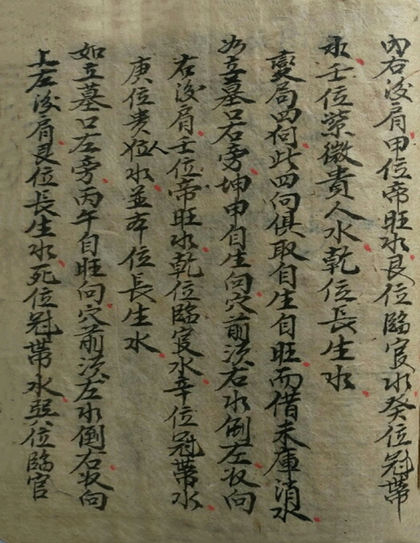 內右後肩甲位帝旺水艮位臨官水癸位冠帶
水壬位紫微貴人水乾位長生水
變局四向此四向俱取自生自旺而借末庫消水
如立墓口右旁坤申自生向穴前須右水倒左收向
右後肩壬位帝旺水乾位臨官水辛位冠帶水
庚位貴人位水並本位長生水
如立墓口左旁丙午自旺向穴前須左水倒右收向
上左後肩艮位長生水死位冠帶水巽位臨官